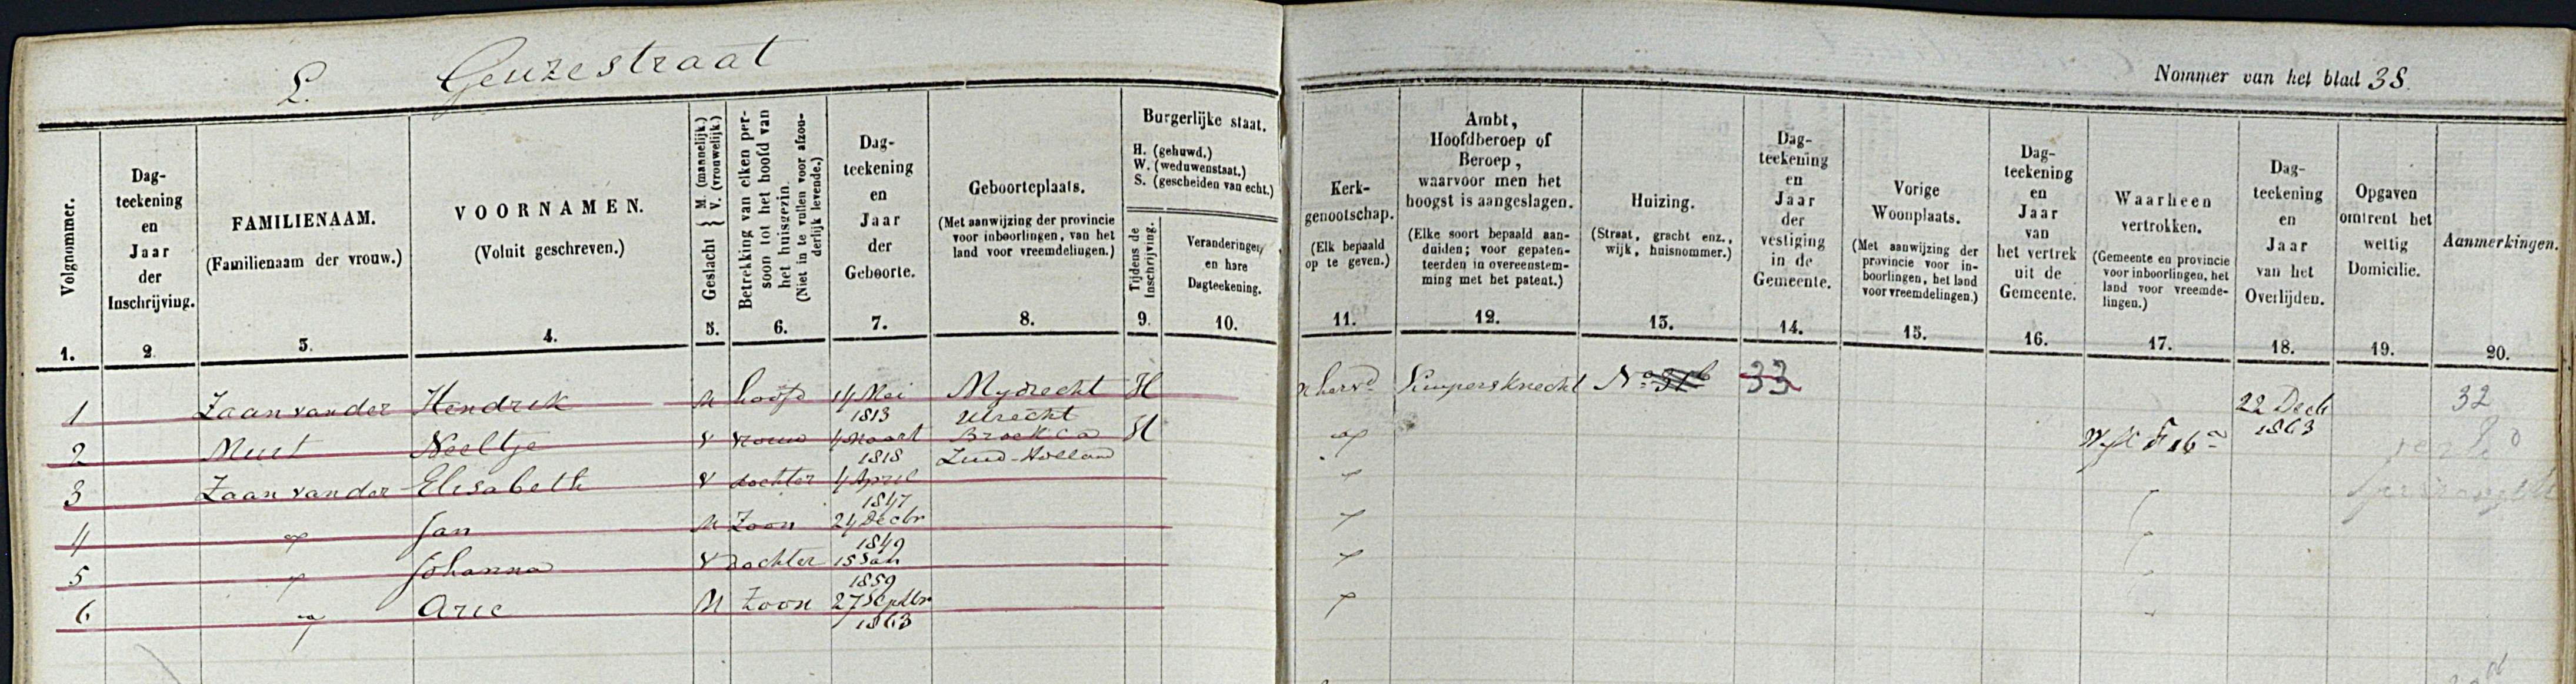 L. Geuzestraat
Nommer van het blad 38.
Volgnommer.
1.
Dag-
teekening
en
Jaar
der
Inschrijving.
2
FAMILIENAAM.
(Familienaam der vrouw.)
3.
VOORNAMEN.
(Voluit geschreven.)
4.
Geslacht } M. (mannelijk.)
V. (vrouwelijk.)
5.
Betrekking van elken per-
soon tot het hoofd van
het huisgezin.
(Niet in te vullen voor afzon-
derlijk levende.)
6.
Dag-
teekening
en
Jaar
der
Geboorte.
7.
Geboorteplaats.
(Met aanwijzing der provincie
voor inboorlingen, van het
land voor vreemdelingen.)
8.
Burgerlijke staat.
H. (gehuwd.)
W. (weduwenstaat.)
S. (gescheiden van echt.)
Tijdens de
inschrijving.
9.
Veranderingen
en hare
Dagteekening.
10.
Kerk-
genootschap.
(Elk bepaald
op te geven.)
11.
Ambt,
Hoofdberoep of
Beroep,
waarvoor men het
hoogst is aangeslagen.
(Elke soort bepaald aan-
duiden; voor gepaten-
teerden in overeenstem-
ming met het patent.)
12.
Huizing.
(Straat, gracht enz.,
wijk, huisnommer.)
13.
Dag-
teekening
en
Jaar
der
vestiging
in de
Gemeente.
14.
Vorige
Woonplaats.
(Met aanwijzing der
provincie voor in-
boorlingen, het land
voor vreemdelingen.)
15.
Dag-
teekening
en
Jaar
van
het vertrek
uit de
Gemeente.
16.
Waarheen
vertrokken.
(Gemeente en provincie
voor inboorlingen, het
land voor vreemde-
lingen.)
17.
Dag-
teekening
en
Jaar
van het
Overlijden.
18.
Opgaven
omtrent het
wettig
Domicilie.
19.
Aanmerkingen.
20.
1 Zaan van der Hendrik M hoofd 14 Mei 1813 Mydrecht Utrecht H n herv^d Kuipersknecht N^o 31^b 33 22 Decb 1863 32
2 Muit Neeltje V vrouw 4 Maart 1818 Broek c a Zuid-Holland H " Wyk F 16^a
3 Zaan van der Elisabeth V dochter 4 April 1847 " "
4 " Jan M Zoon 24 Decbr 1849 " "
5 " Johanna V dochter 15 Jan 1859 " "
6 " Arie M Zoon 27 Septbr 1863 " "